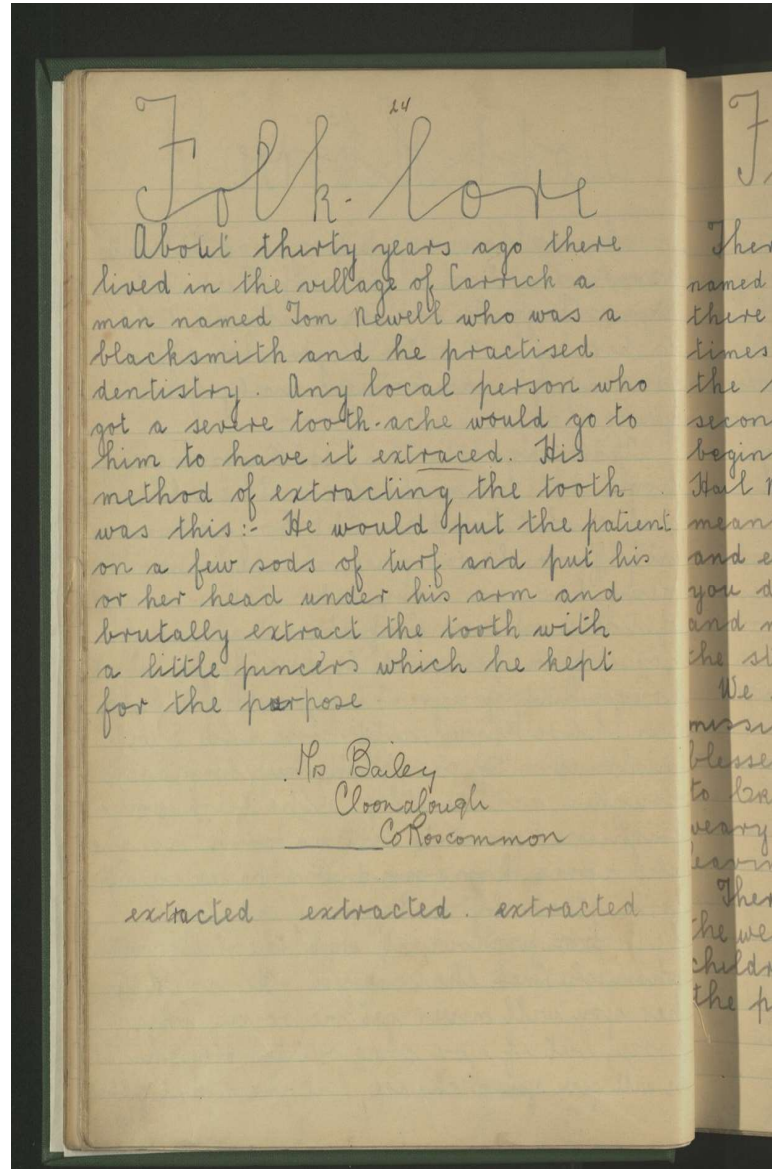 24
Folk-lore
About thirty years ago there
lived in the village of Carrick a
man named Tom Newell who was a
blacksmith and he practised
dentistry. Any local person who
got a severe tooth-ache would go to
him to have it extraced. His
method of extracting the tooth
was this:- He would put the patient
on a few sods of turf and put his
or her head under his arm and
brutally extract the tooth with
a little pincers which he kept
for the purpose
Mrs Bailey
Cloonafough
Co Roscommon
extracted extracted. extracted
Ther
named
there
times
the
secon
begin
Hail
mean
and e
you d
and
the st
We
missi
blesse
to
weary
leavin
Ther
the we
childr
the p